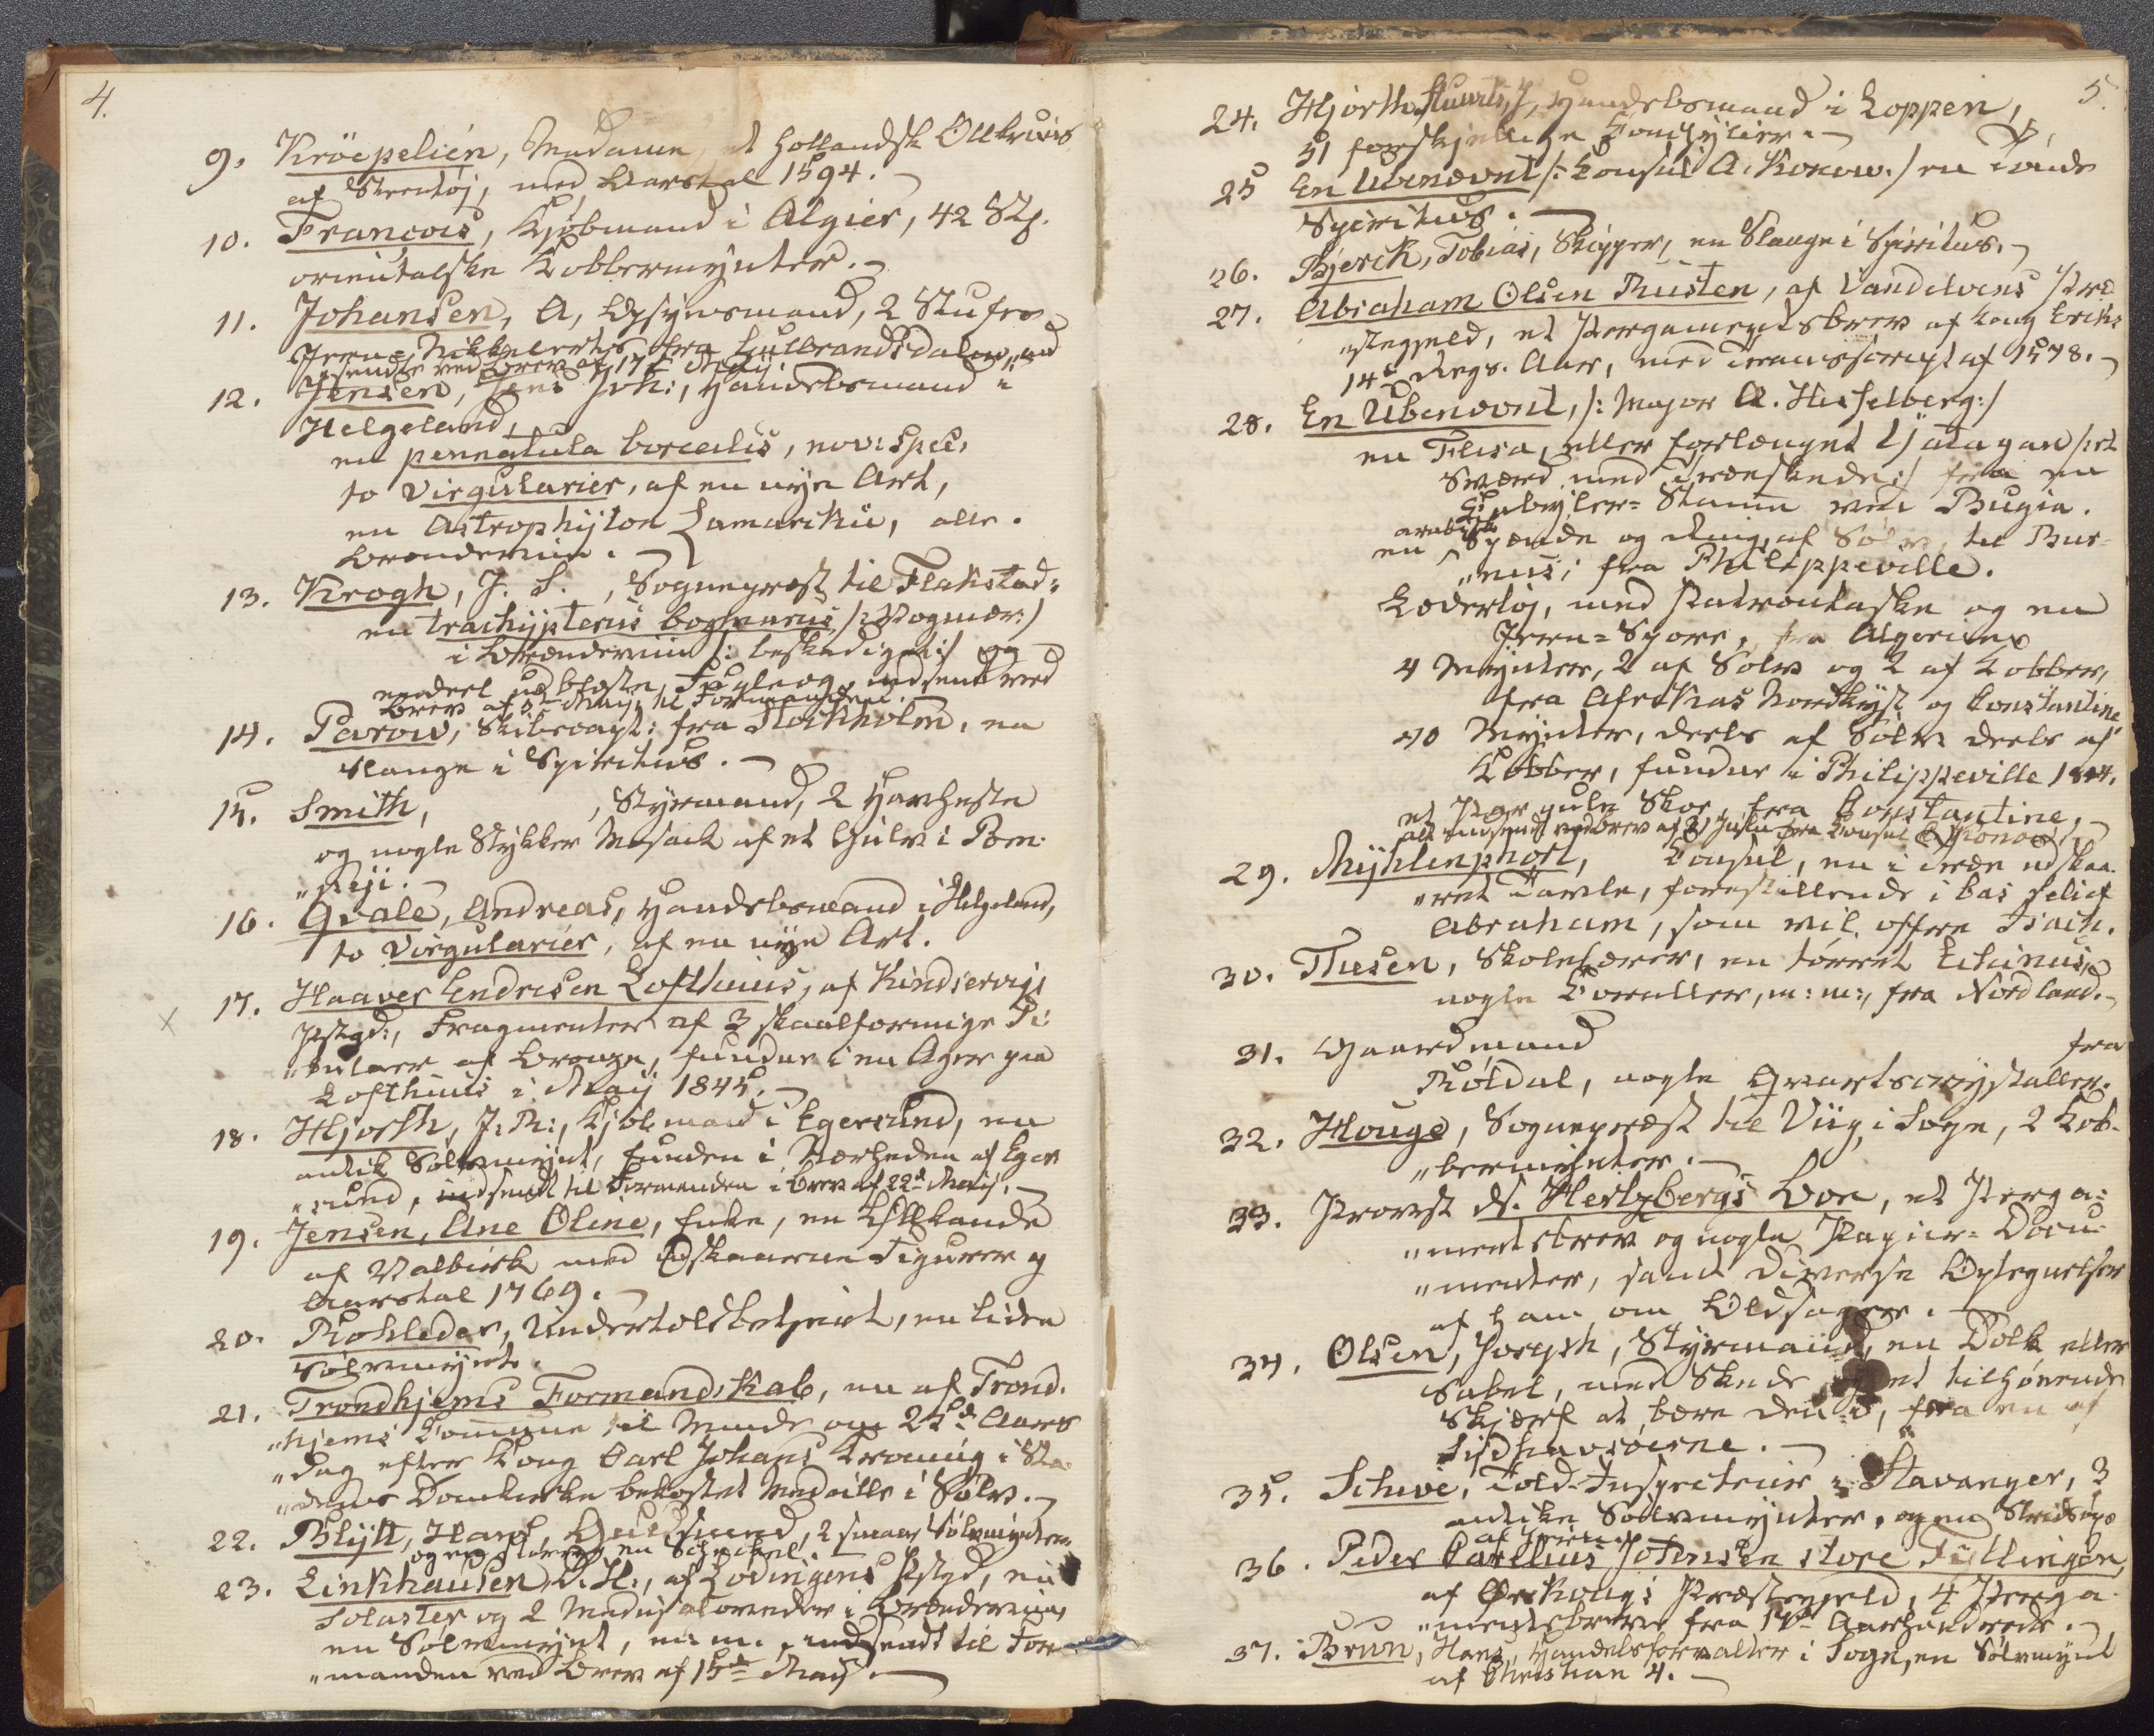 4.
9. Kröepelien, Madamme, et hollandsk Ølkruus
af Steentøj, med Aarstal 1594.
10. Francois, Kjøbmand i Algier, 42 Stk.
orientalske Kobbermynter.
11. Johansen, A, Opsynsmand, 2 Stufer
Jern= Nikkelerts fra Gulbrandsdalen, ind
sendte ved Brev af 17de Maij
12. Jensen, Jens Joh:, Handelsmand i
Helgeland,
en pennatula borealis, nov: spec:
to Virgularier, af en nye Art,
en Astrophyton Lamarckii, alle.
Brændeviin.
13. Krogh, J. S. , Sognepræst til Flakstad„
en trachypterus bogmarus /: Vogmær:/
i Brændeviin /: beskadiget:/ og
endeel udblæste Fugleæg, indsendt ved
Brev af 5te Maij til Formanden.
14. Parow, Skibscapt: fra Stockholm, en
Slange i Spiritus.
15. Smith, , Styrmand, 2 Havheste
og nogle Stykker Mosaik af et Gulv i Pom-
„peji.
16. Qvale, Andreas, Handelsmand i Helgeland,
to Virgularier, af en nye Art.
X 17. Haaver Endresen Lofthuus, af Kindservigs
Pstgd:, Fragmenter af 3 skaalformige Fi-
„bulaer af Bronze, fundne i en Ager paa
Lofthuus i Maij 1845.
18. Hjorth, J. R:, Kjøbmand i Egersund, en
antik Sølvmynt, funden i Nærheden af Eger
„sund, indsendt til Formanden i Brev af 22de Maij.
19. Jensen, Ane Oline, Enke, en Ølkande
af Valbirk med udskaarne Figurer og
Aarstal 1769.
20. Rohleder, Undertoldbetjent, en liden
Sølvmynt.
21. Trondhjems Formandskab, en af Trond-
„hjems Commune til Minde om 25de Aars
„dag efter Kong Carl Johans Kroning i Sta-
„dens Domkirke bekostet Medaille i Sølv.
22. Blytt, Hans, Guldsmed, 2 smaae Sølvmynter
og en større, en Scheckel.
23. Linkhausen, D. H., af Lødingens Pstgd, en
Solaster og 2 Medusahoveder i Brændeviin,
en Sølvmynt, m: m. , indsendt til For-
„manden ved Brev af 15de Maij.
5.
24. Hjorth, Stuwitz, J, Handelsmand i Loppen,
51 forskjellige Conchylier.
25 En Ubenævnt /: Consul A. Konow./ en Due
Spiritus.
26. Bjerck, Tobias, Skipper, en Slange i Spiritus.
27. Abraham Olsen Rusten, af Vandelvens Præ-
„stegjeld, et Pergamentsbrev af Kong Eriks
14de Regj. Aar, med Transscript af 1578.
28. En Ubenævnt, /: Major A. Hesselberg:/
en Flissa, eller forlænget Yatagan /: et
Sværd med Træskede:/ fra en
Kabyler= Stamme ved Bugia.
en arabisk Spænde og Ring, af Sølv, til Bur-
„nus, fra Philippeville.
Lædertøj, med Patrontaske og en
Jern= Spore, fra Algerien
4 Mynter, 2 af Sølv og 2 af Kobber,
fra Afrikas Nordkyst og Constantine
40 Mynter, deels af Sølv deels af
Kobber, fundne i Philippeville 1844.
et Par gule Skoe, fra Constantine,
alt indsendt ved Brev af 3 Julii fra Consul A Konow
29. Myhlenphort, Consul, en i Træe udskaa-
„ret Tavle, forestillende i bas relief
Abraham, som vil offre Isach.
30. Thesen, Skolelærer, en tørret Echinus,
nogle Coraller, m: m:, fra Nordland.
31. Gaardmand fra
Røldal, nogle Qvartscrystaller.
32. Houge, Sognepræst til Viig i Sogn, 2 Kob-
„bermynter.
33. Provst N. Hertzbergs Boe, et Perga-
„mentsbrev og nogle Papier= Docu-
„menter, samt diverse Optegnelser
af ham om Oldsager.
34. Olsen, Joseph, Styrmand, en Dolk eller
Sabel, med Skede og et tilhørende
Skjærf at bære den i, fra en af
Sydhavsøerne.
35. Schive, Told-Inspecteur i Stavanger, 3
antike Sølvmynter, og en Stridsøxe
af Jern.
36. Peder Carelius Johnsen store Fyllingen,
af Ørskougs Præstegjeld, 4 Perga-
„mentsbreve fra 15de Aarhundrede.
37. Brun, Hans, Handelsforvalter i Sogn, en Sølvmynt
af Christian 4.